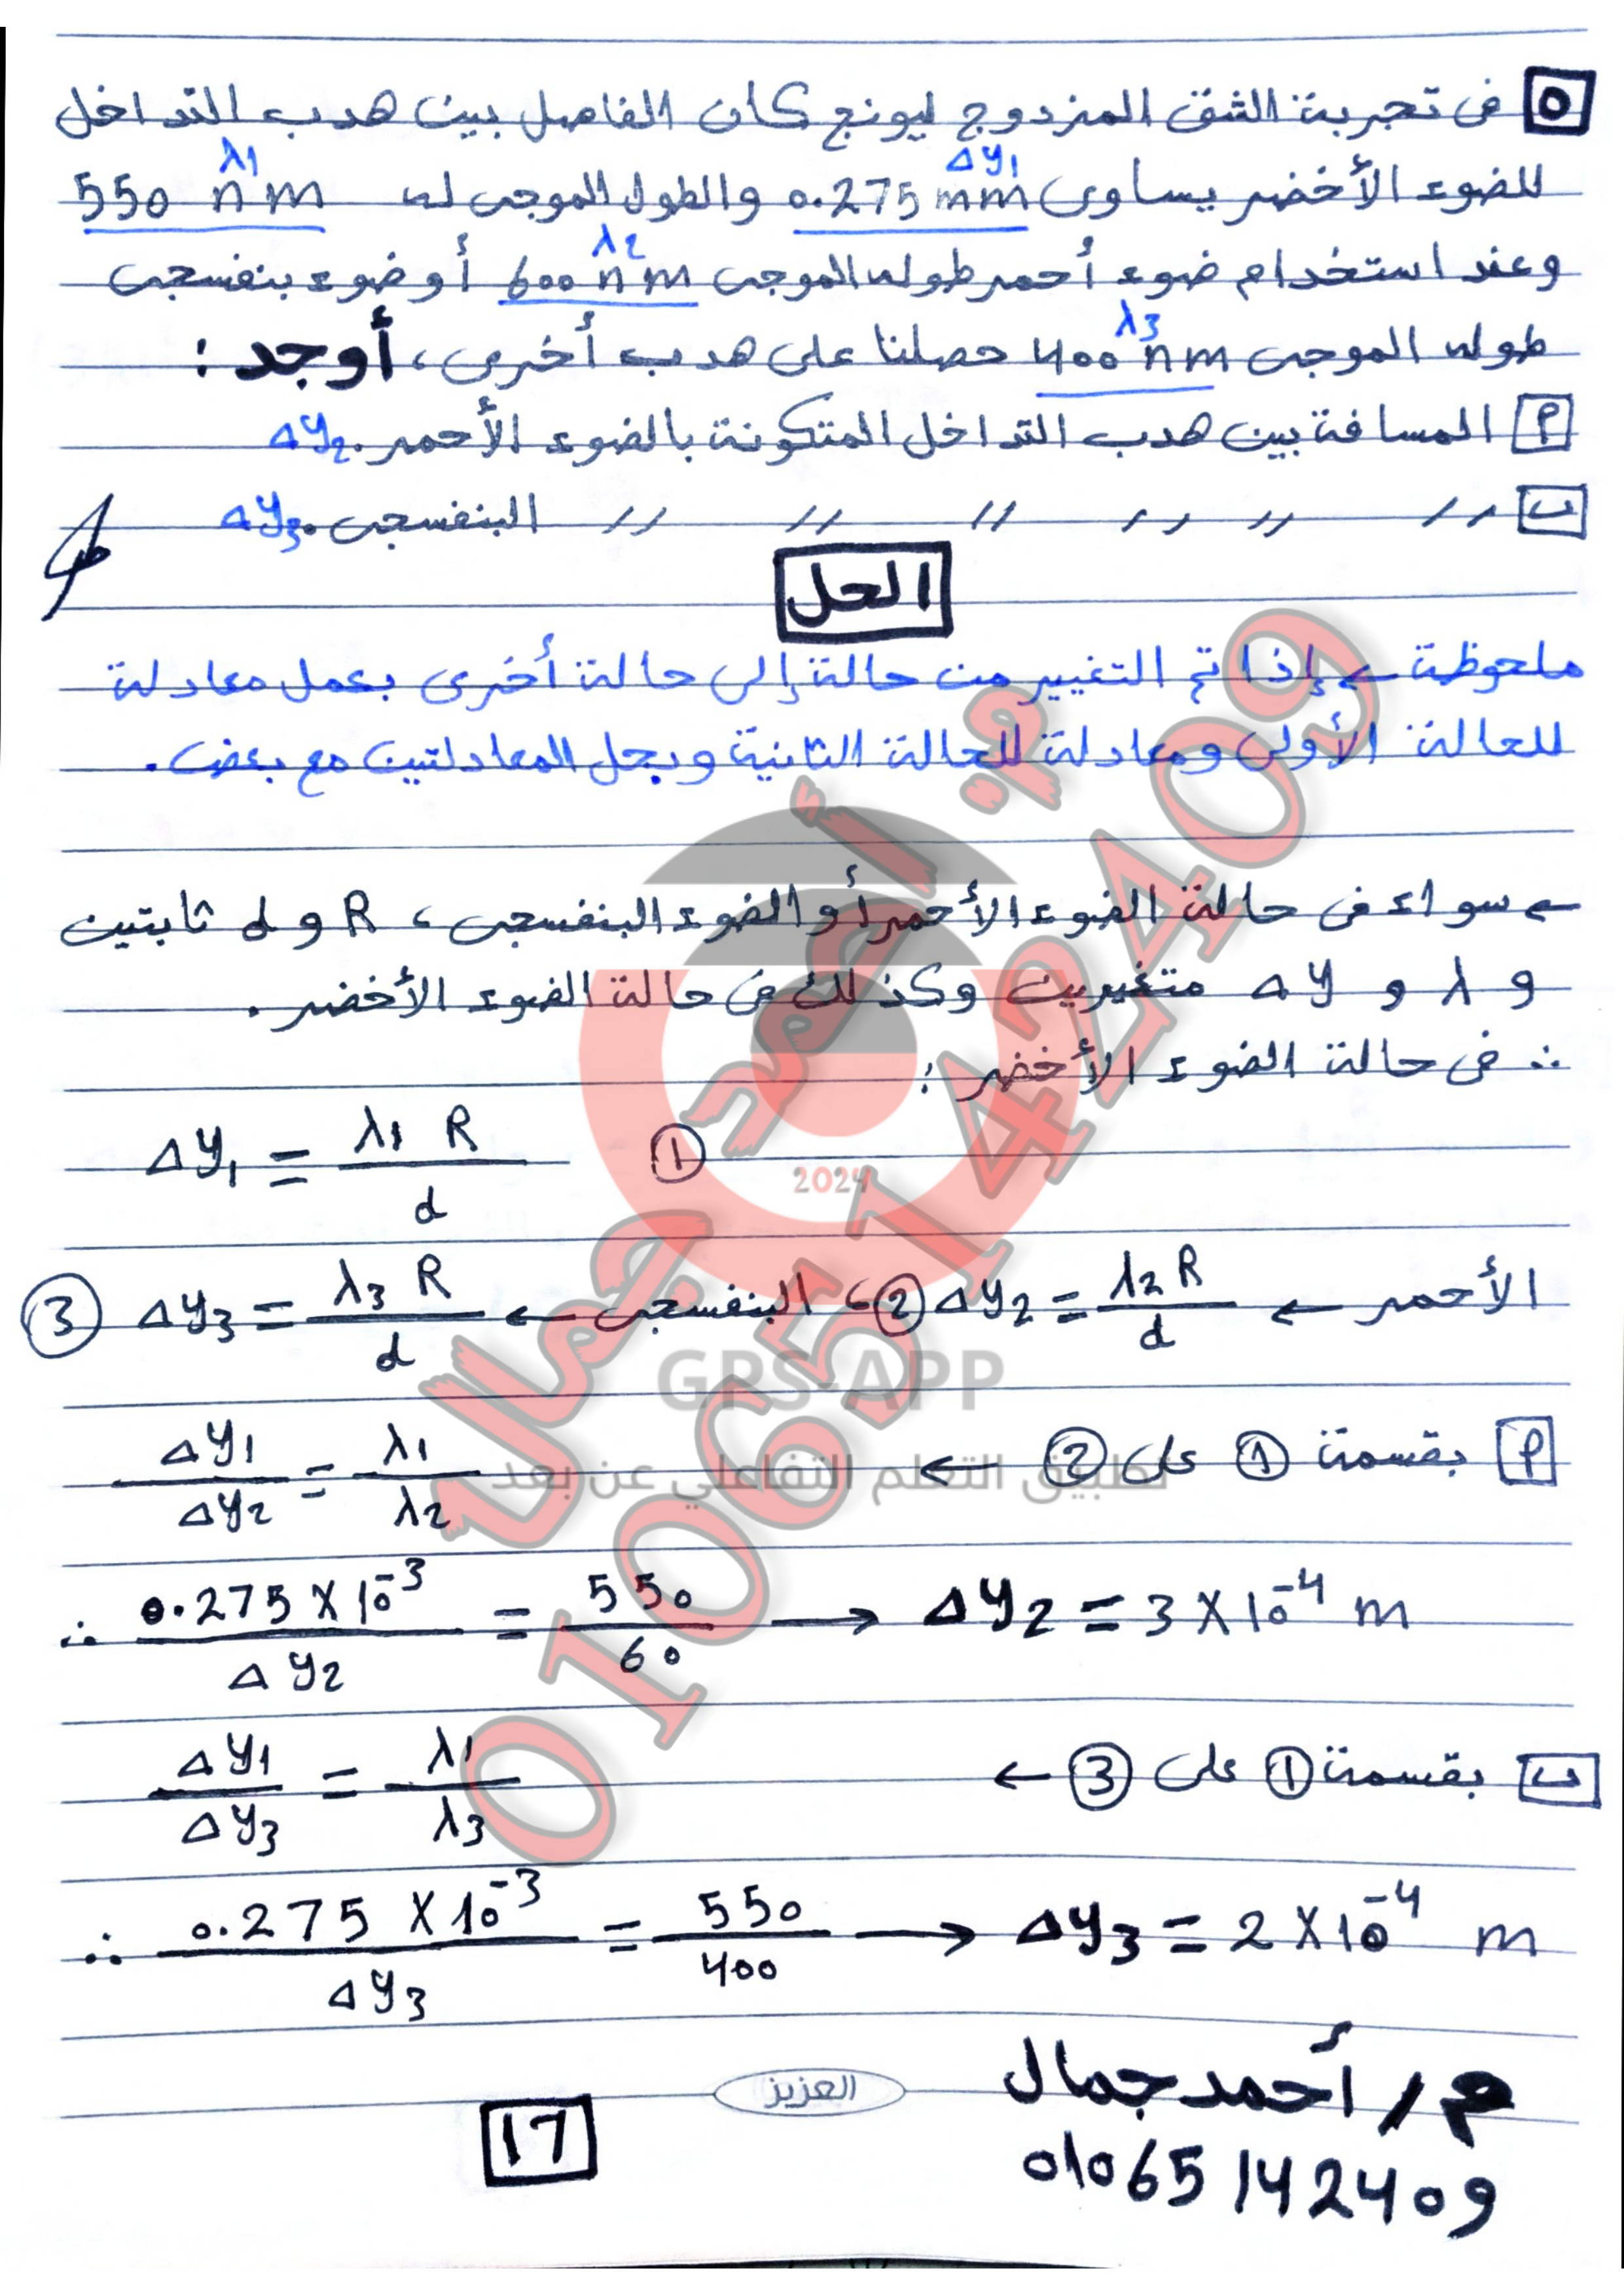 ٥ فى تجربة الشق المزدوج ليونج كان الفاصل بين هدب التداخل
λ1
Δy1
للضوء الأخضر يساوى 0.275 mm والطول الموجى له 550 nm
λ2
وعند استخدام ضوء أحمر طوله الموجى 600 nm أو ضوء بنفسجى
λ3
طوله الموجى 400 nm حصلنا على هدب أخرى، أوجد :
أ المسافة بين هدب التداخل المتكونة بالضوء الأحمر. Δy2
ب // // // // // // البنفسجى. Δy3
الحل
ملحوظة ← إذا تم التغيير من حالة إلى حالة أخرى بعمل معادلة
للحالة الأولى ومعادلة للحالة الثانية وبحل المعادلتين مع بعض.
← سواء فى حالة الضوء الأحمر أو الضوء البنفسجى، R و d ثابتين
و λ و Δy متغيرين وكذلك فى حالة الضوء الأخضر.
∴ فى حالة الضوء الأخضر :
Δy1 = λ1 R / d ①
الأحمر ← Δy2 = λ2 R / d ②، البنفسجى ← Δy3 = λ3 R / d ③
أ بقسمة ① على ② ← Δy1 / Δy2 = λ1 / λ2
∴ 0.275 X 10⁻³ / Δy2 = 550 / 60 → Δy2 = 3 X 10⁻⁴ m
ب بقسمة ① على ③ ← Δy1 / Δy3 = λ1 / λ3
∴ 0.275 X 10⁻³ / Δy3 = 550 / 400 → Δy3 = 2 X 10⁻⁴ m
م / أحمد جمال
01065142409
العزيز
17
م. أحمد جمال
01065142409
2024
GPS-APP
تطبيق التعلم التفاعلي عن بعد